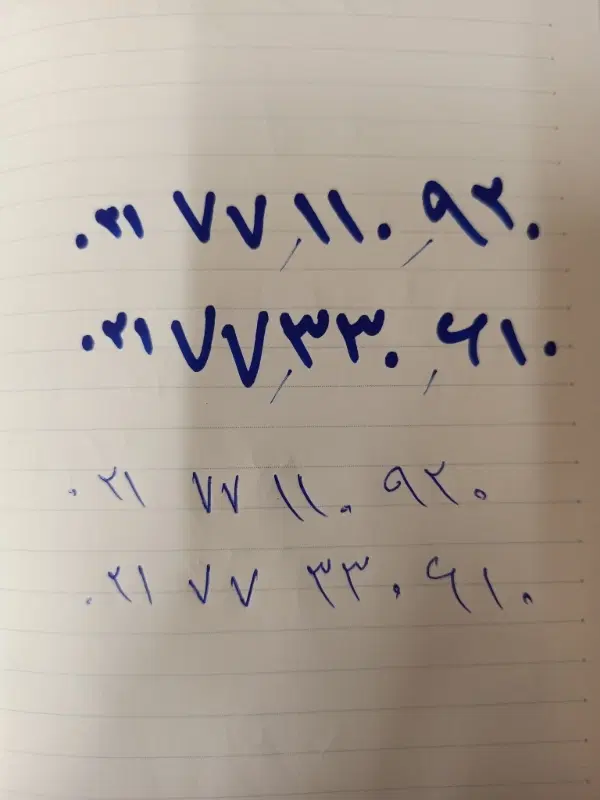 ۰۲۱ ۷۷,۱۱۰,۹۲۰
۰۲۱ ۷۷,۳۳۰,۶۱۰
۰۲۱ ۷۷ ۱۱۰ ۹۲۰
۰۲۱ ۷۷ ۳۳۰ ۶۱۰